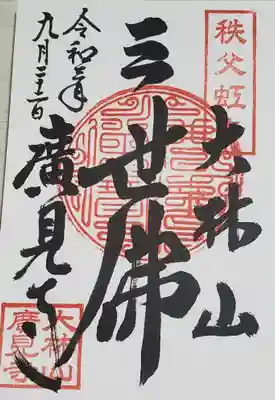 秩父虹
大林山
三世佛
令和年
九月
廣見寺
大林山
廣見寺